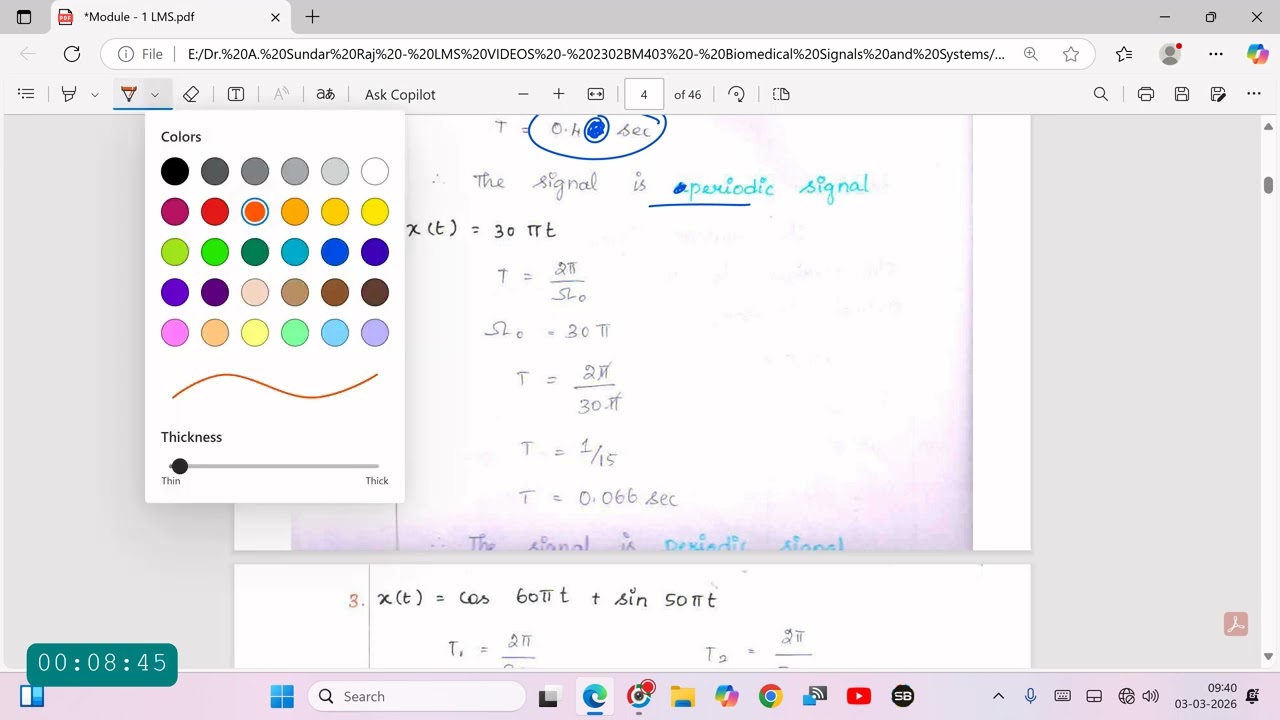 *Module - 1 LMS.pdf
File
E:/Dr.%20A.%20Sundar%20Raj%20-%20LMS%20VIDEOS%20-%202302BM403%20-%20Biomedical%20Signals%20and%20Systems/...
Ask Copilot
4 of 46
Colors
Thickness
Thin Thick
T = 0.4 sec
∴ The signal is periodic signal
x(t) = 30 πt
T = 2π/Ω₀
Ω₀ = 30 π
T = 2π/30π
T = 1/15
T = 0.066 sec
∴ The signal is periodic signal
3. x(t) = cos 60πt + sin 50πt
T₁ = 2π
T₂ = 2π
00:08:45
Search
SB
09:40
03-03-2026